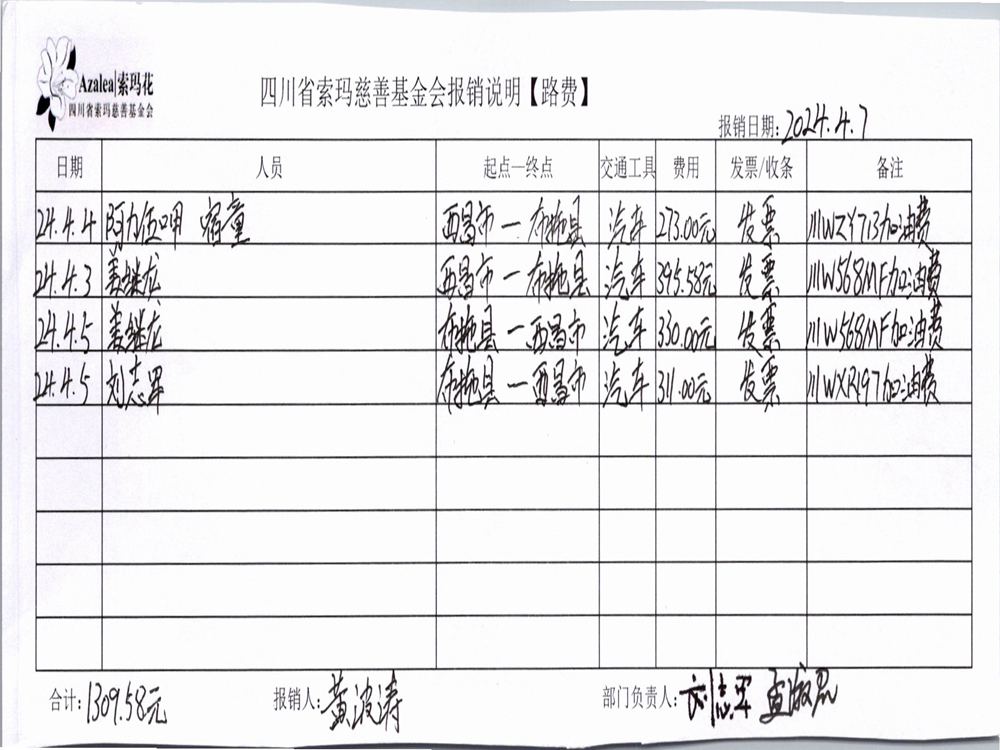 Azalea|索玛花
四川省索玛慈善基金会
四川省索玛慈善基金会报销说明【路费】
报销日期: 2024.4.7
日期 人员 起点—终点 交通工具 费用 发票/收条 备注
24.4.4 阿力伍呷 宿童 西昌市—布拖县 汽车 273.00元 发票 川WZY713加油费
24.4.3 姜继龙 西昌市—布拖县 汽车 395.58元 发票 川W568MF加油费
24.4.5 姜继龙 布拖县—西昌市 汽车 330.00元 发票 川W568MF加油费
24.4.5 刘志军 布拖县—西昌市 汽车 311.00元 发票 川WXR197加油费
合计: 1309.58元 报销人: 黄波涛 部门负责人: 刘志军